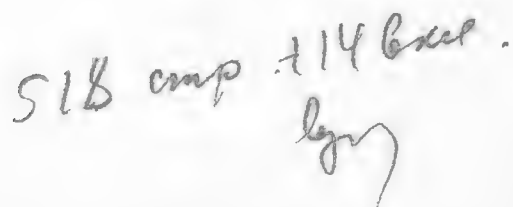 518 стр. +14 вкл.